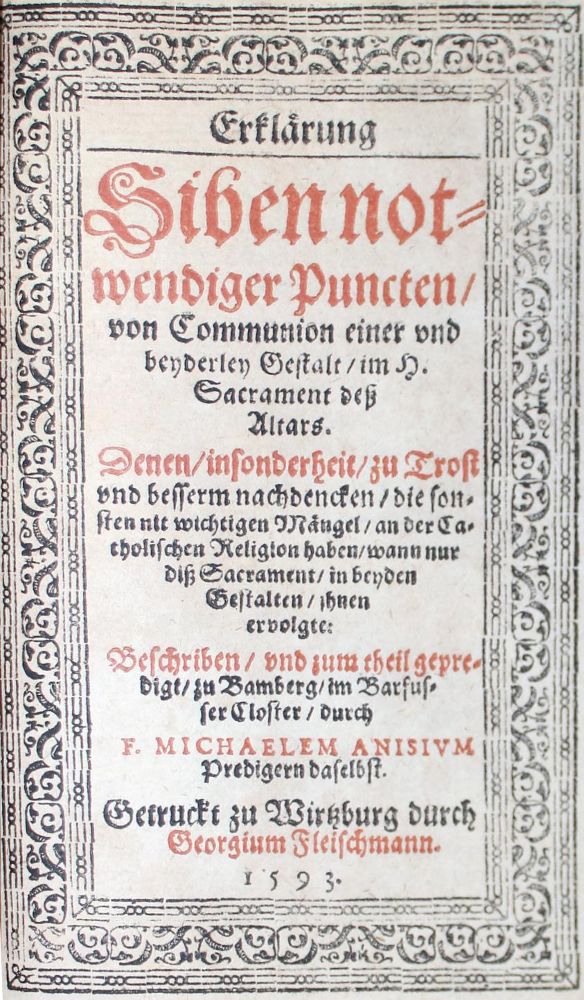 Erklärung
Siben not-
wendiger Puncten/
von Communion einer vnd
beyderley Gestalt/ im H.
Sacrament deß
Altars.
Denen/ insonderheit/ zu Trost
vnd besserm nachdencken/ die son-
sten nit wichtigen Mängel/ an der Ca-
tholischen Religion haben/ wann nur
diß Sacrament/ in beyden
Gestalten/ jhnen
ervolgte:
Beschriben/ vnd zum theil gepre-
digt/ zu Bamberg/ im Barfus-
ser Closter/ durch
F. MICHAELEM ANISIVM
Predigern daselbst.
Getruckt zu Wirtzburg durch
Georgium Fleischmann.
1593.